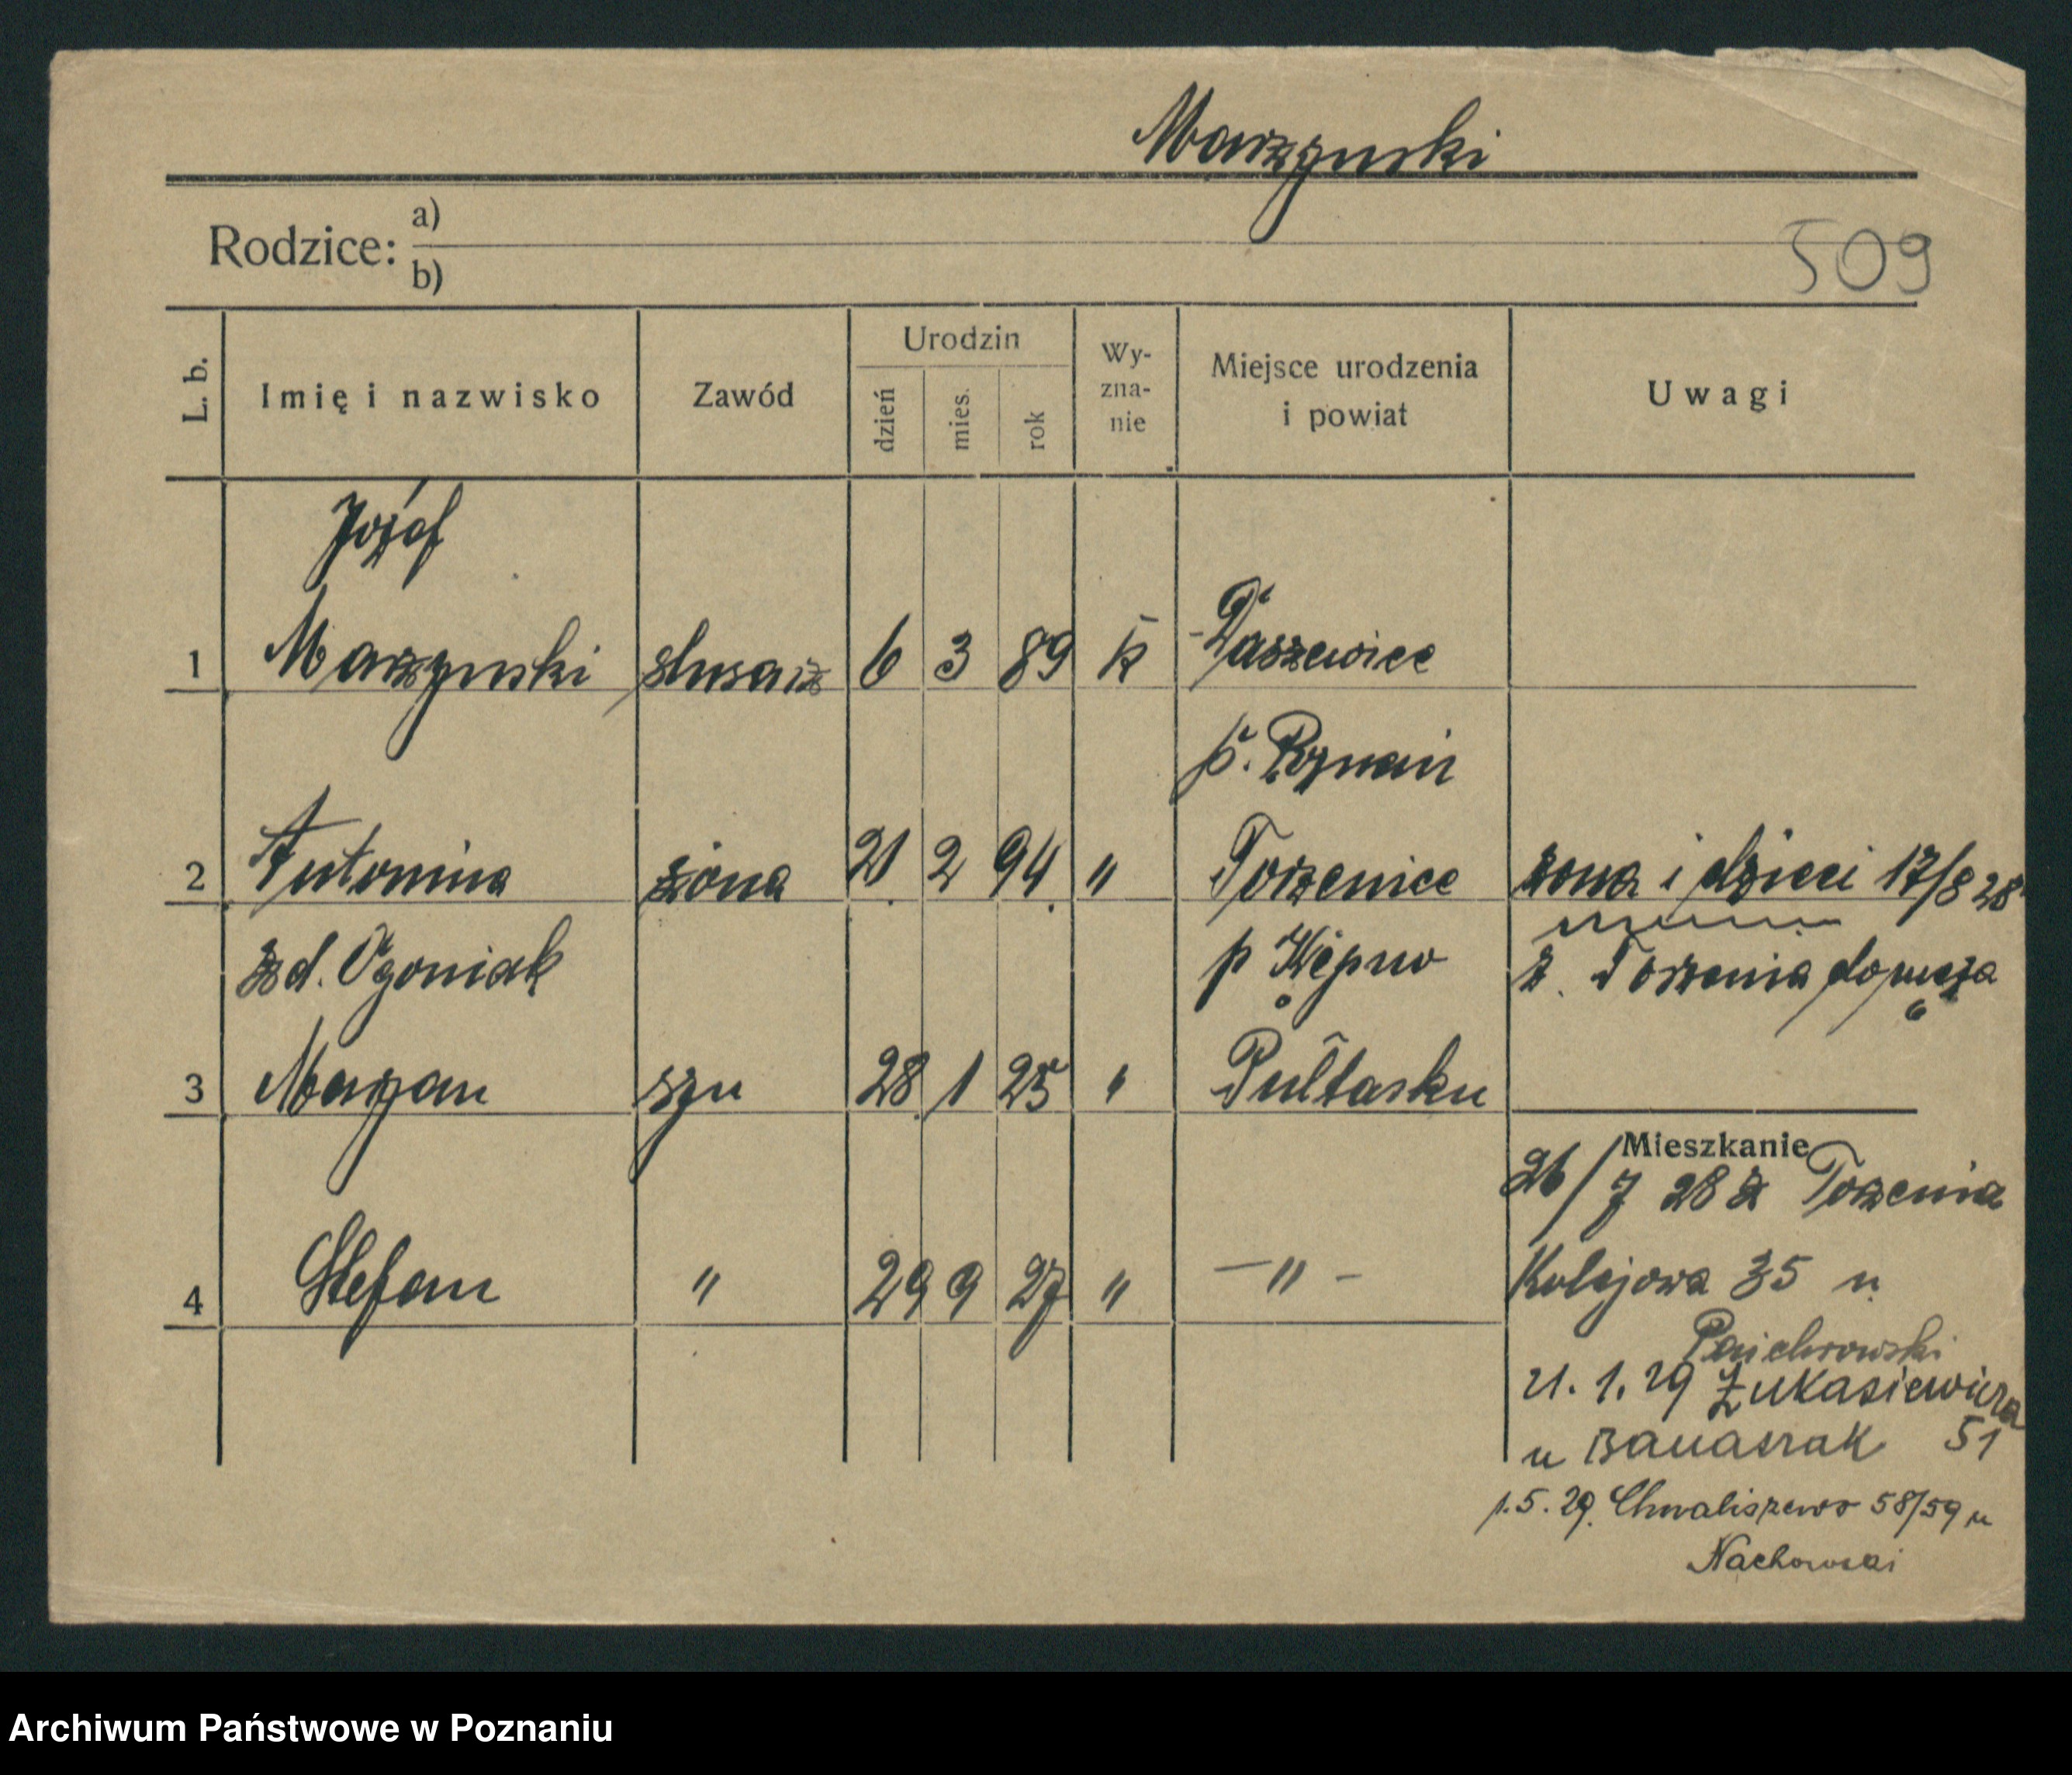 Marzynski
Rodzice: a)
b)
509
L. b. Imię i nazwisko Zawód Urodzin dzień mies. rok Wy-zna-nie Miejsce urodzenia i powiat Uwagi
Józef
1 Marzynski slusarz 6 3 89 k Daszewice
p. Poznań
2 Antonina żona 21 2 94 " Torzenice żona i dzieci 17/8 28
zd. Ogoniak p Kępno z Torzenia do męża
3 Maryan syn 28 1 25 " Pułtasku
Mieszkanie
26/7 28 z Torzenia
4 Stefan " 29 9 27 " — " — Kolejowa 35 u
Pajchrowski
21. 1. 29 Łukasiewicza
u Banaszak 51
1. 5. 29. Chwaliszewo 58/59 u
Nachowski
Archiwum Państwowe w Poznaniu